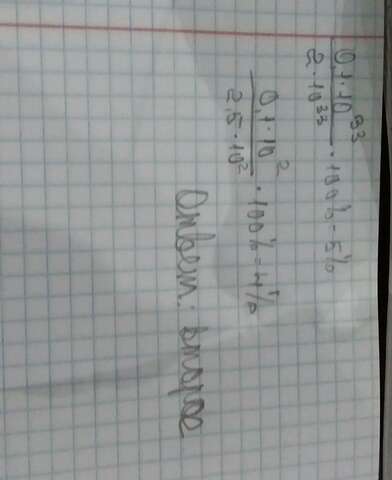 0,1·10³³
2·10³³ ·100%=5%
0,1·10²
2,5·10² ·100%=4%
Ответ: второе